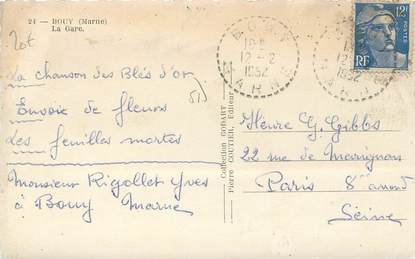 24 - BOUY (Marne)
La Gare.
La chanson des Blés d'or
Envoie de fleurs
Les feuilles mortes
Monsieur Rigollet Yves
à Bouy Marne
Collection GOBART
Pierre COUTIER, Editeur
BOUY
12-2
1952
MARNE
12-2
1952
12F
POSTES
RF
G. Gibbs
22 rue de Marignan
Paris 8e arrond
Seine